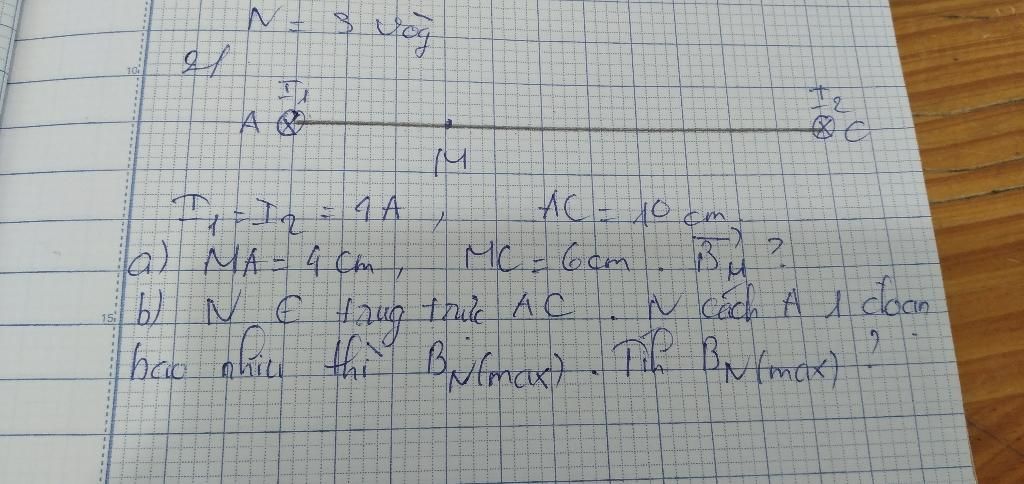 N = 3 vòg
2/
I1 I2
A C
M
I1 = I2 = 1A , AC = 10 cm
a) MA = 4 cm , MC = 6 cm . B⃗M ?
b) N ∈ trug trực AC . N cách A 1 đoạn
bao nhiu thì BN(max) . Tíh BN(max) ?
10
15